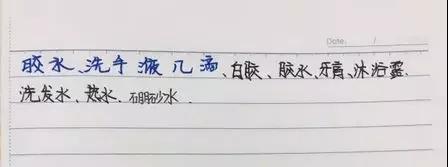 Date: /
胶水、洗手液几滴、白胶、胶水、牙膏、沐浴露.
洗发水、热水.硼砂水.